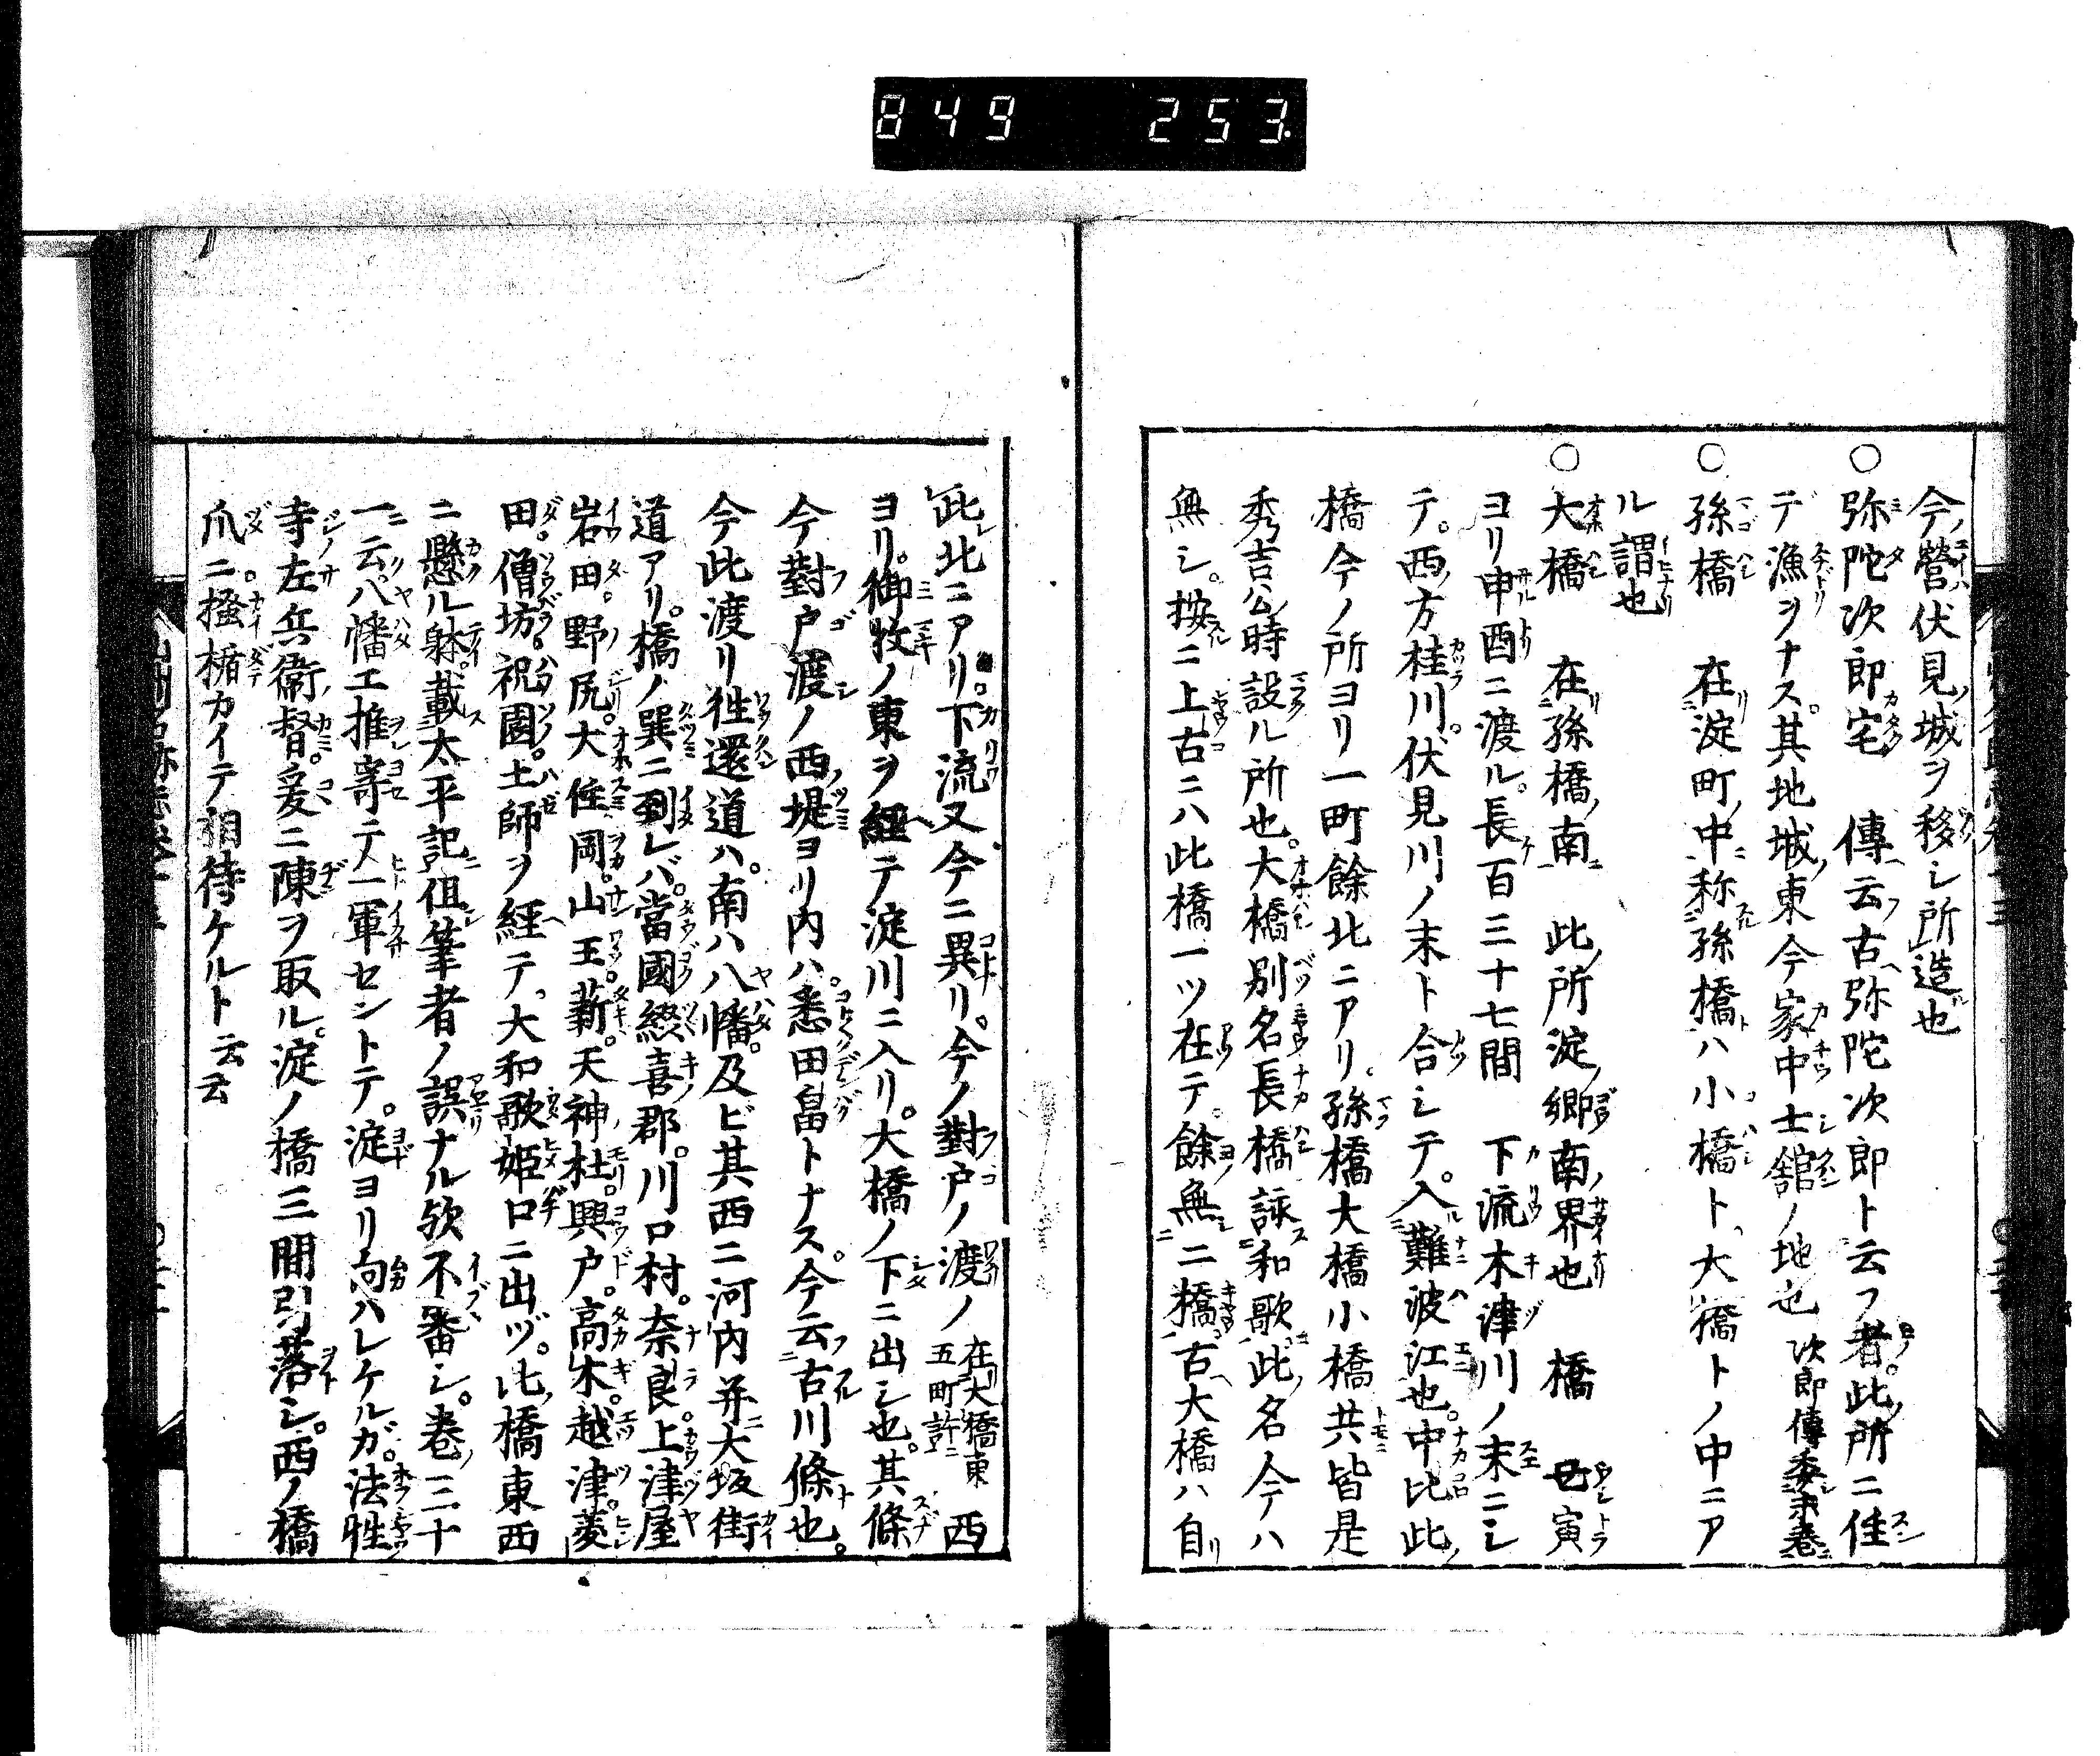 849 253.
今ノ營伏見ノ城ヲ移シ所造也
○弥陀次郎宅 傳云古弥陀次郎ト云フ者。此所ニ住
テ漁ヲナス。其地城ノ東今家中士舘ノ地也 次郎傳委
○孫橋 在淀町ノ中称孫橋ハ小橋ト大橋トノ中ニア
ル謂也
○大橋 在孫橋ノ南 此所淀郷ノ南ノ界也 橋 丑寅
ヨリ申酉ニ渡ル。長百三十七間 下流木津川ノ末ニシ
テ。西ノ方桂川。伏見川ノ末ト合シテ。入難波江也。中比此
橋今ノ所ヨリ一町餘北ニアリ。孫橋大橋小橋共皆是
秀吉公時設ル所也。大橋別名長橋詠和歌此名今ハ
無シ。按ニ上古ニハ此橋一ツ在テ。餘無二橋古大橋ハ自
此北ニアリ。下流又今ニ異リ。今ノ對戸ノ渡ノ 在大橋東五町許 西
ヨリ。御牧ノ東ヲ經テ淀川ニ入リ。大橋ノ下ニ出シ也。其條
今對戸渡ノ西ノ堤ヨリ内ハ。悉田畠トナス。今云古川條也。
今此渡リ徃還道ハ。南ハ八幡。及ビ其西ニ河内并大坂街
道アリ。橋ノ巽ニ到レバ。當國綴喜郡。川口村。奈良。上津屋
岩田。野尻。大住岡。山王。薪。天神杜。興戸。高木。越津。菱
田。僧坊。祝園。土師ヲ經テ。大和歌姫口ニ出ヅ。此橋東西
ニ懸ル躰。載太平記伹筆者ノ誤ナル欤不審シ。巻ノ三十
一ニ云。八幡エ推寄テ一軍セシトテ。淀ヨリ向ハレケルガ。法性
寺左兵衞督。爰ニ陳ヲ取ル。淀ノ橋三間引落シ。西ノ橋
爪ニ掻楯カイテ相待ケルト云云